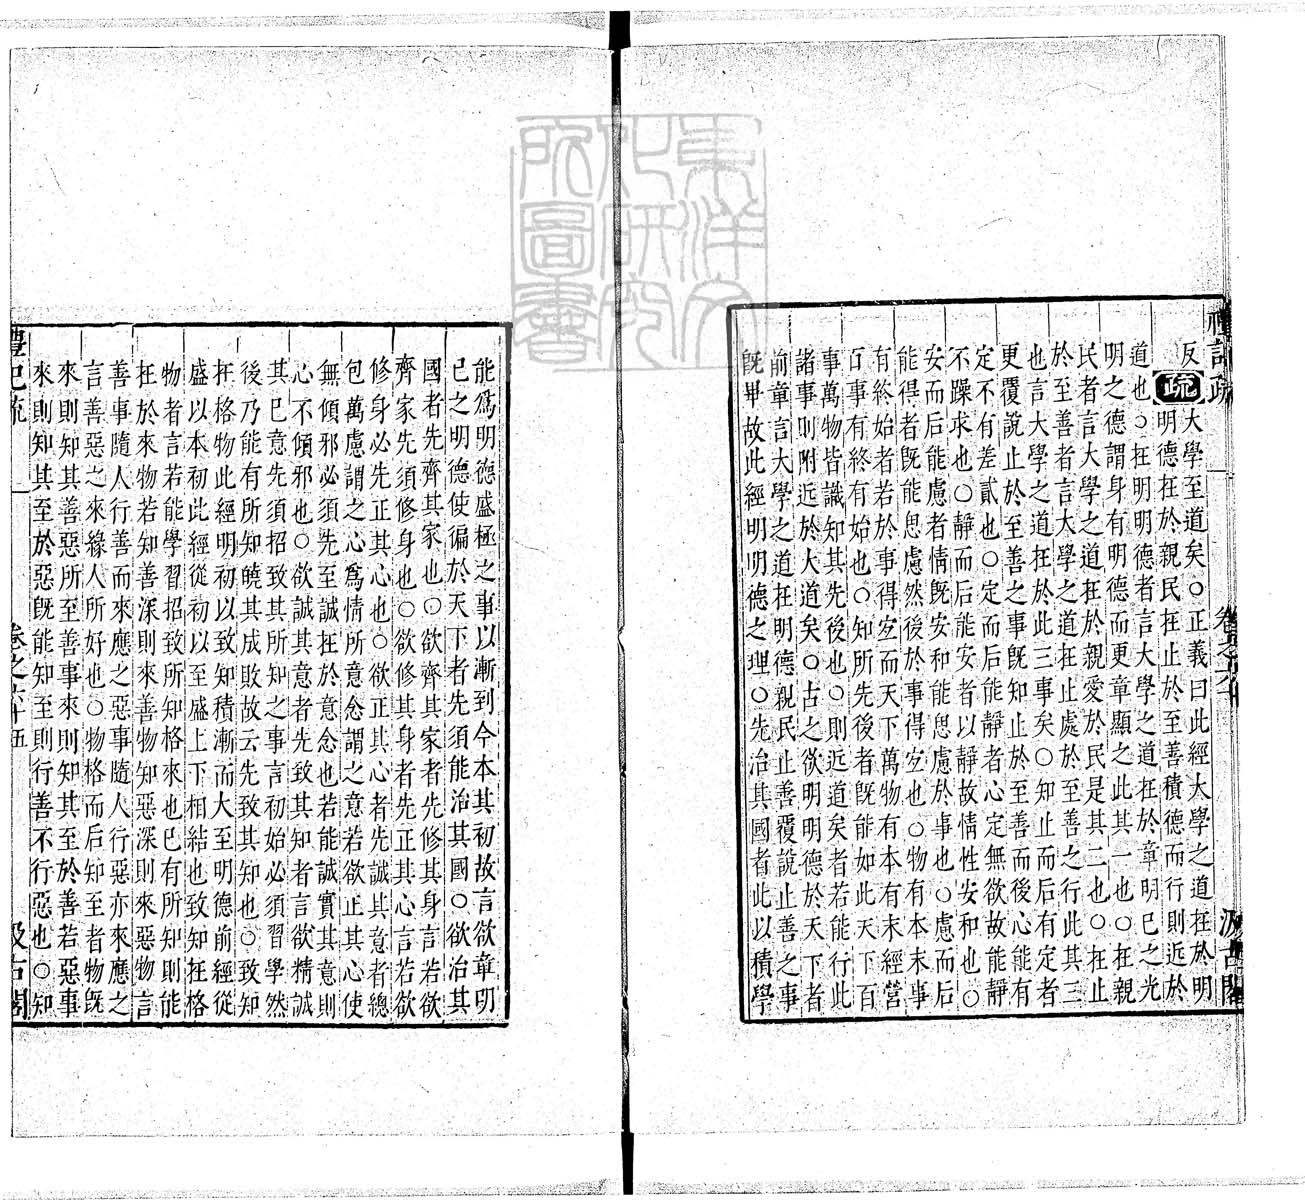 禮記疏
卷之六十
汲古閣
反
疏
大學至道矣○正義曰此經大學之道在於明
明德在於親民在止於至善積德而行則近於
道也○在明明德者言大學之道在於章明己之光
明之德謂身有明德而更章顯之此其一也○在親
民者言大學之道在於親愛於民是其二也○在止
於至善者言大學之道在止處於至善之行此其三
也言大學之道在於此三事矣○知止而后有定者
更覆說止於至善之事既知止於至善而後心能有
定不有差貳也○定而后能靜者心定無欲故能靜
不躁求也○靜而后能安者以靜故情性安和也○
安而后能慮者情既安和能思慮於事也○慮而后
能得者既能思慮然後於事得宜也○物有本末事
有終始者若於事得宜而天下萬物有本有末經營
百事有終有始也○知所先後者既能如此天下百
事萬物皆識知其先後也○則近道矣者若能行此
諸事則附近於大道矣○古之欲明明德於天下者
前章言大學之道在明德親民止善覆說止善之事
既畢故此經明明德之理○先治其國者此以積學
能爲明德盛極之事以漸到今本其初故言欲章明
已之明德使徧於天下者先須能治其國○欲治其
國者先齊其家也○欲齊其家者先修其身言若欲
齊家先須修身也○欲修其身者先正其心言若欲
修身必先正其心也○欲正其心者先誠其意者總
包萬慮謂之心爲情所意念謂之意若欲正其心使
無傾邪必須先至誠在於意念也若能誠實其意則
心不傾邪也○欲誠其意者先致其知者言欲精誠
其已意先須招致其所知之事言初始必須習學然
後乃能有所知曉其成敗故云先致其知也○致知
在格物此經明初以致知積漸而大至明德前經從
盛以本初此經從初以至盛上下相結也致知在格
物者言若能學習招致所知格來也已有所知則能
在於來物若知善深則來善物知惡深則來惡物言
善事隨人行善而來應之惡事隨人行惡亦來應之
言善惡之來緣人所好也○物格而后知至者物既
來則知其善惡所至善事來則知其至於善若惡事
來則知其至於惡既能知至則行善不行惡也○知
禮記疏
卷之六十
五
汲古閣
東洋文
化研究
所圖書